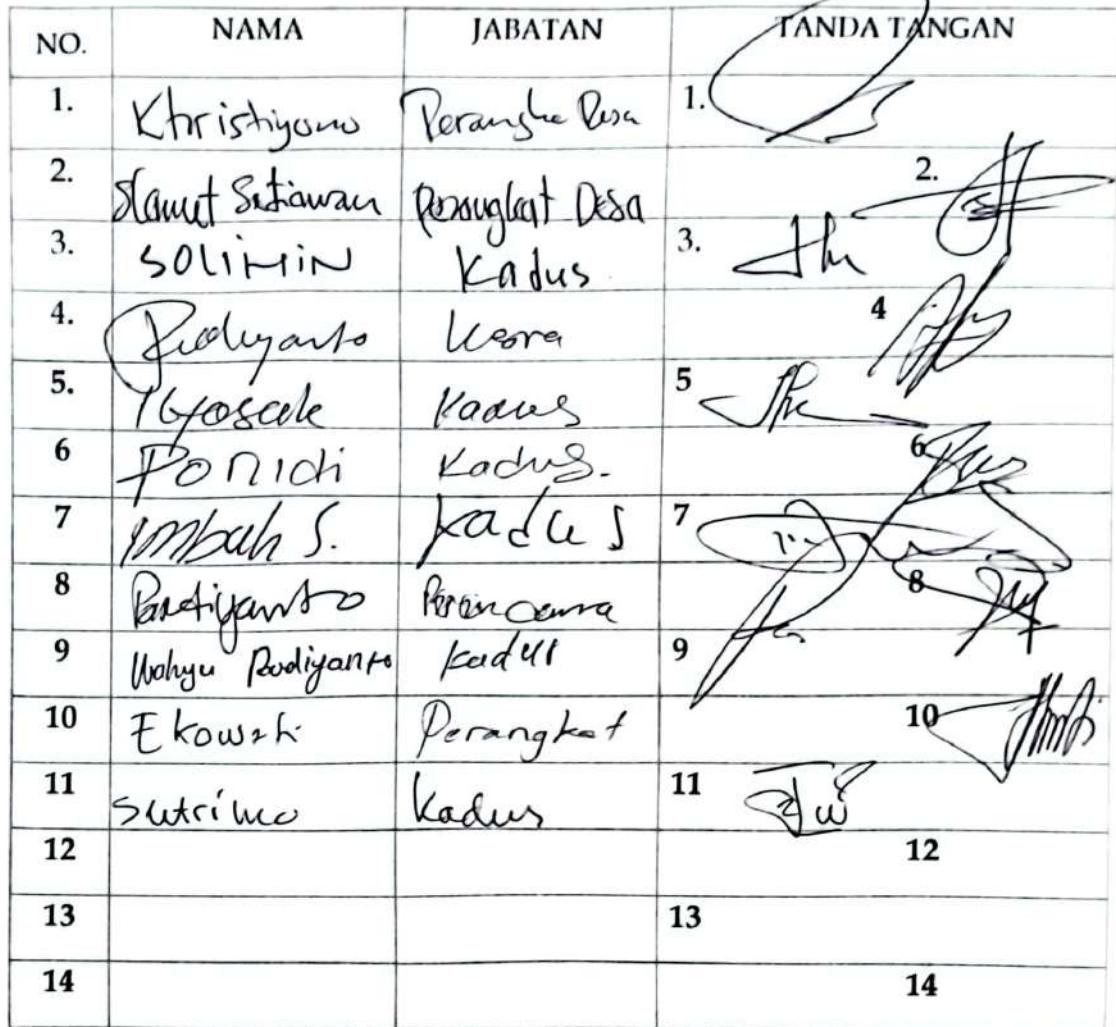 NO. NAMA JABATAN TANDA TANGAN
1. Khristiyono Perangka Desa 1.
2. Slamut Setiawan Perangkat Desa 2.
3. SOLIMIN Kadus 3.
4. Rudiyanto Kesra 4
5. Kadus 5
6 PONIDI Kadus. 6
7 Imbuh S. Kadus 7
8 Perencana 8
9 Wahyu Rudiyanto Kadus 9
10 Ekowati Perangkat 10
11 Sutrimo Kadus 11
12 12
13 13
14 14